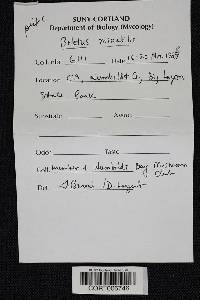 SUNY CORTLAND
Department of Biology (Mycology)
Boletus mirabilis
Coll. no. 6111 Date 16-20 Nov.
Location CA Humboldt Co, Big Lagoon
State Park
Substrate: Assoc:
Odor: Taste:
Coll. member of Humboldt Bay Mushroom
Club
Det.
CORT006746